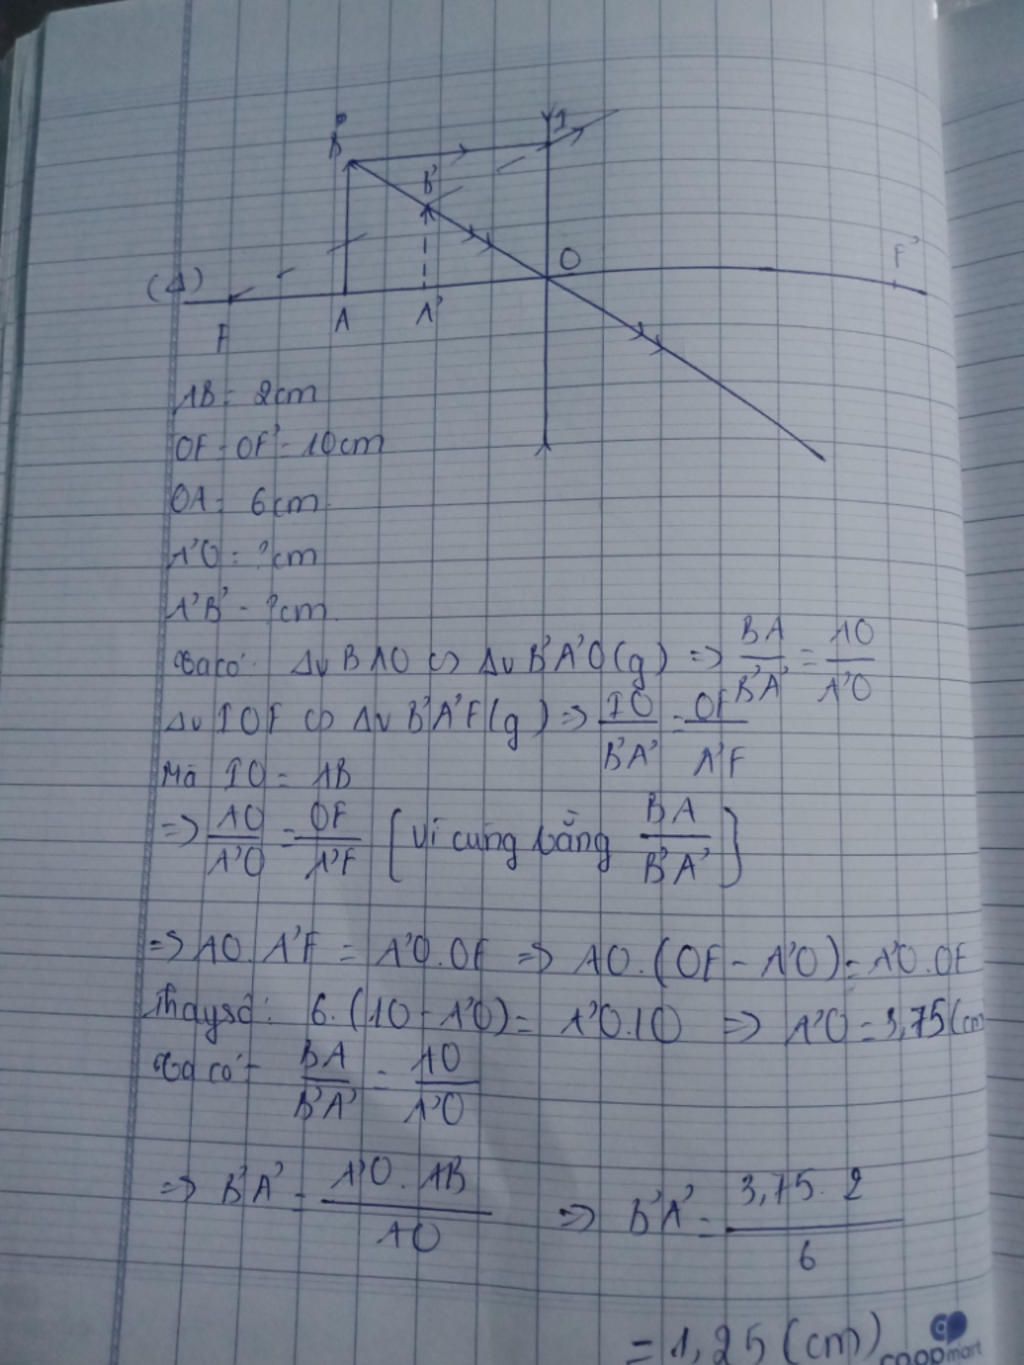 B I
B'
O F'
(Δ)
F A A'
AB = 2cm
OF = OF' = 10cm
OA = 6cm
A'O = ?cm
A'B' = ?cm
Ta có: Δv BAO ∽ Δv B'A'O (g) => BA/B'A' = AO/A'O
Δv IOF ∽ Δv B'A'F (g) => IO/B'A' = OF/A'F
Mà IO = AB
=> AO/A'O = OF/A'F [vì cùng bằng BA/B'A']
=> AO.A'F = A'O.OF => AO.(OF - A'O) = A'O.OF
Thay số: 6.(10 - A'O) = A'O.10 => A'O = 3,75 (cm
Ta có: BA/B'A' = AO/A'O
=> B'A' = A'O.AB/AO => B'A' = 3,75.2/6
= 1,25 (cm)
coopmart